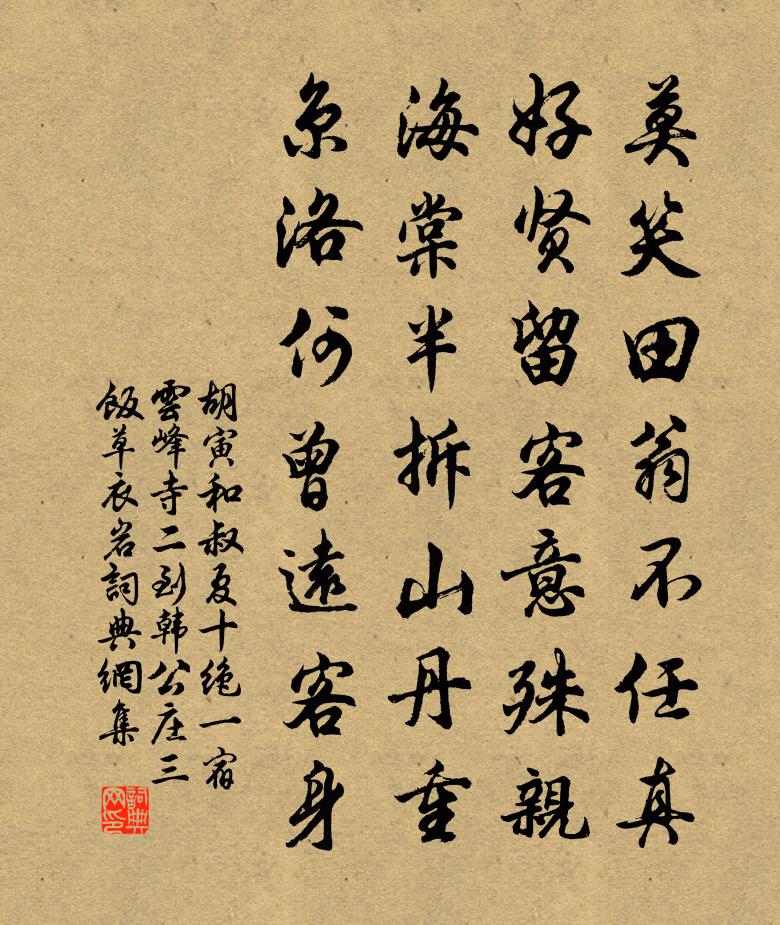 莫笑田翁不任真
好贤留客意殊親
海棠半拆山丹重
京洛何曾遠客身
胡寅和叔夏十绝一宿
雲峰寺二到韩公庄三
飯草衣岩詞典網集
詞典
网印